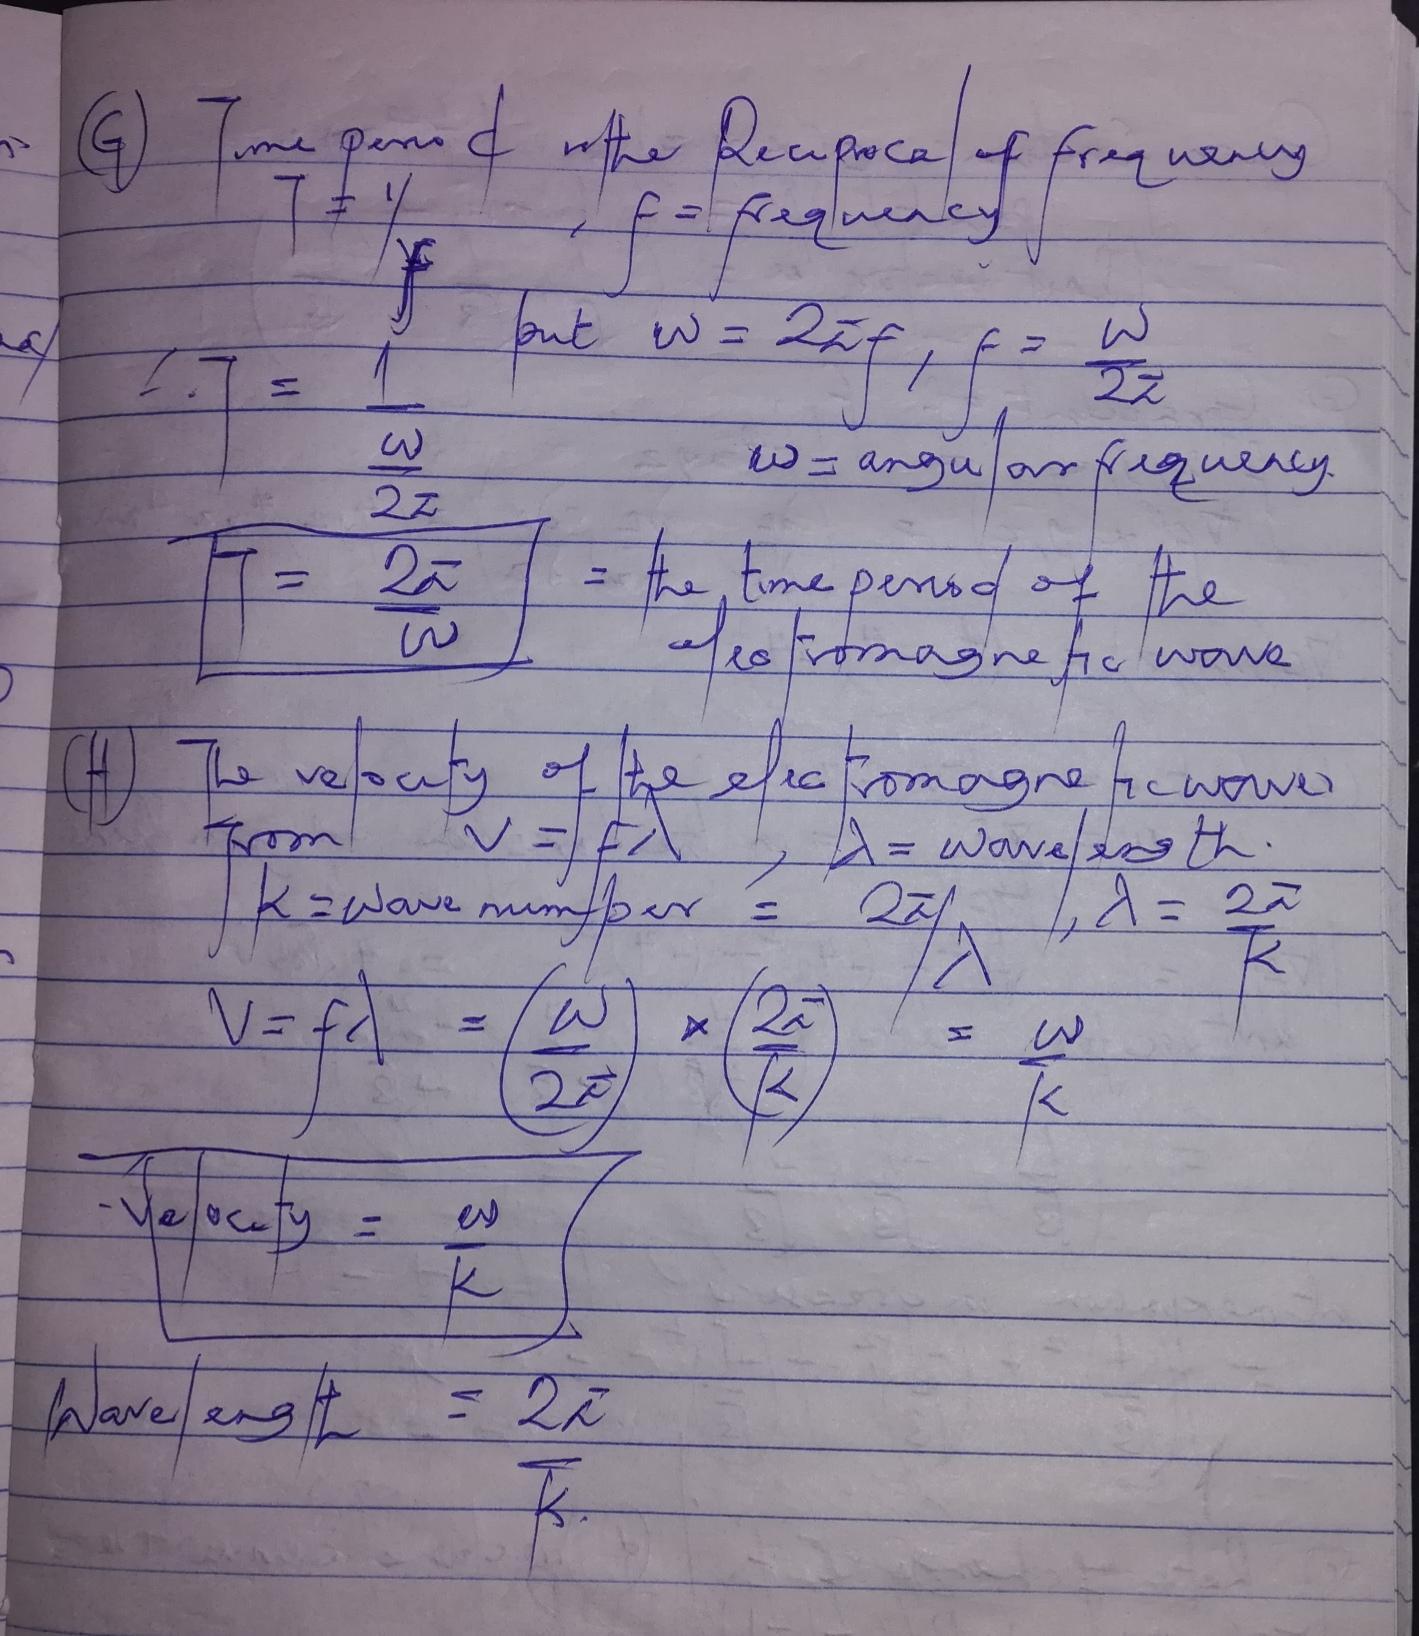 (G) Time period is the Reciprocal of frequency
T = 1/f , f = frequency
but w = 2πf, f = w/2π
∴ T = 1/(w/2π)
w = angular frequency.
T = 2π/w = the time period of the
electromagnetic wave
(H) The velocity of the electromagnetic waves
from V = fλ , λ = wavelength.
k = wave number = 2π/λ , λ = 2π/k
V = fλ = (w/2π) × (2π/k) = w/k
Velocity = w/k
Wavelength = 2π/k.